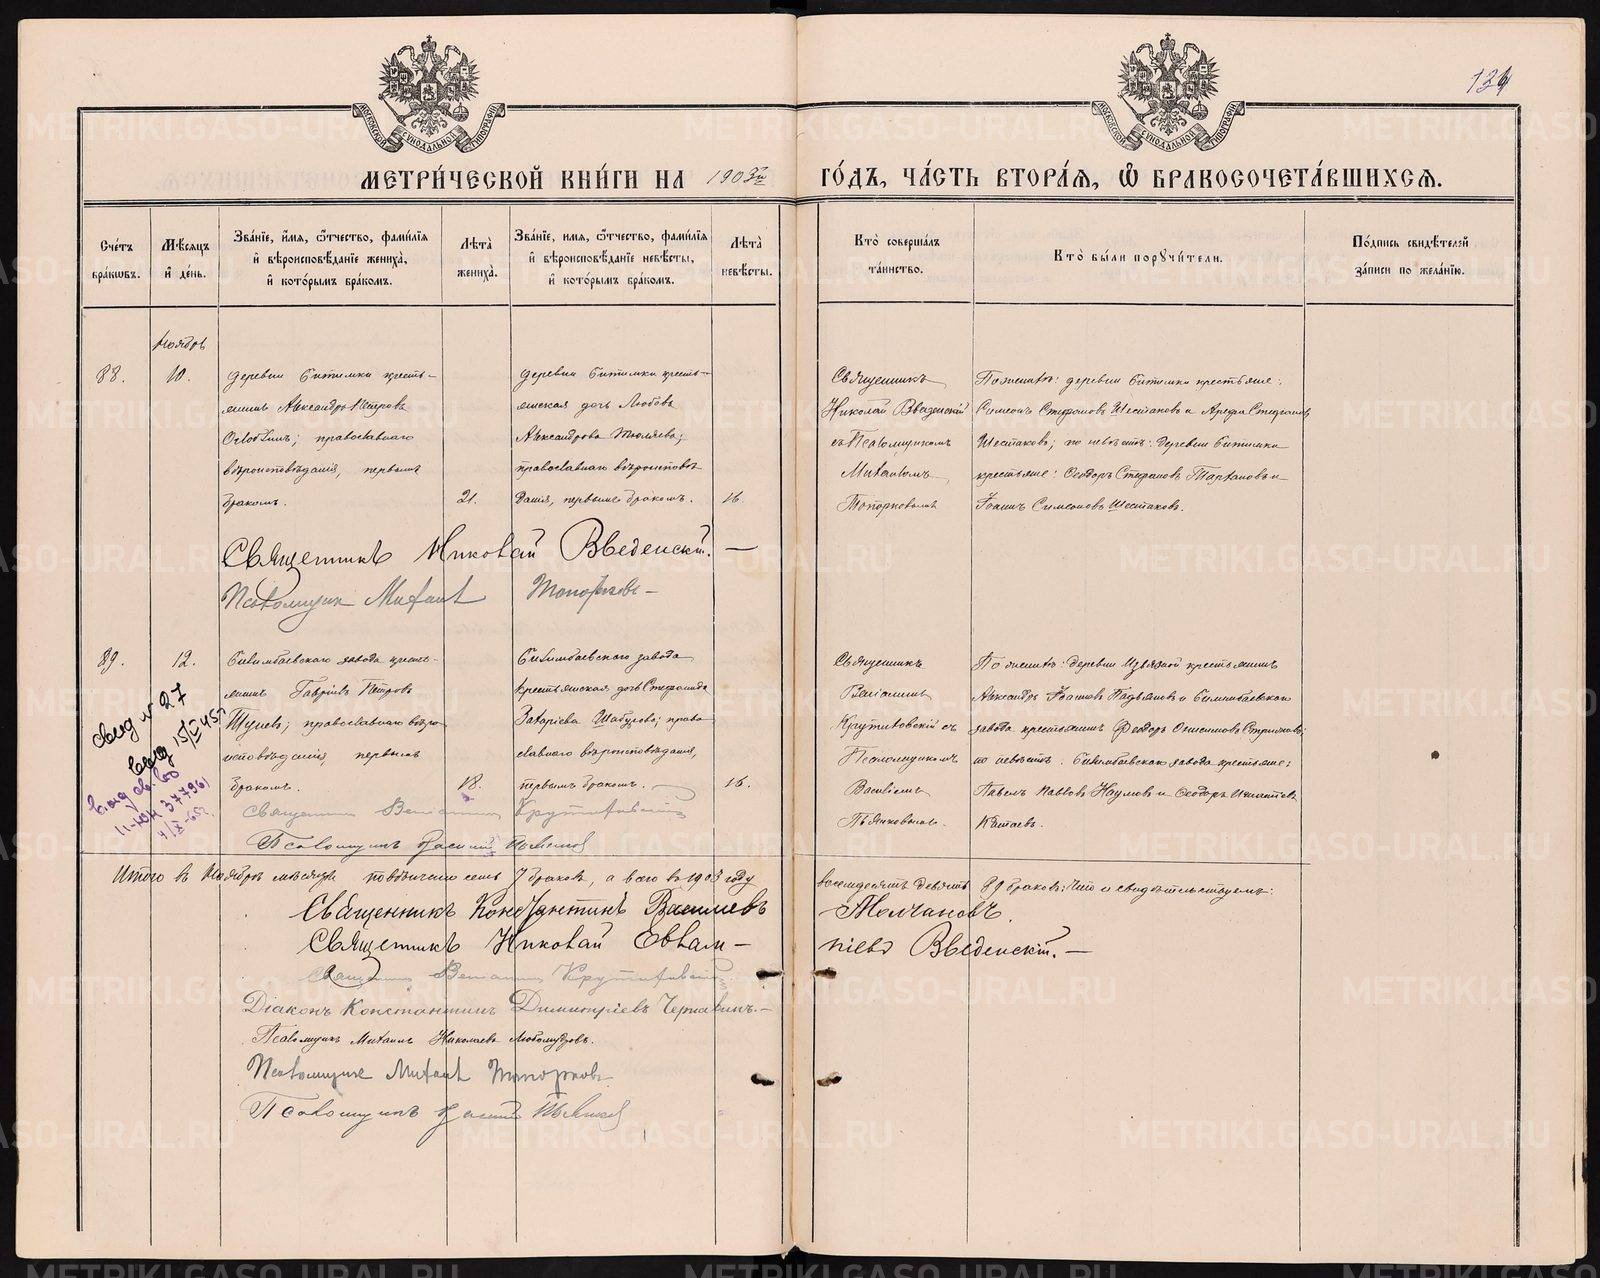 134
МЕТРИЧЕСКОЙ КНИГИ НА 1903й ГОДЪ, ЧАСТЬ ВТОРАЯ, Ѡ БРАКОСОЧЕТАВШИХСЯ.
Счетъ браковъ.
Мѣсяцъ и день.
Званіе, имя, отчество, фамилія и вѣроисповѣданіе жениха, и которымъ бракомъ.
Лѣта жениха.
Званіе, имя, отчество, фамилія и вѣроисповѣданіе невѣсты, и которымъ бракомъ.
Лѣта невѣсты.
Кто совершалъ таинство.
Кто были поручители.
Подпись свидѣтелей записи по желанію.
Ноябрь
88.
10.
деревни Битимки кресть-
янинъ Александръ Петровъ
православнаго
вѣроисповѣданія, первымъ
бракомъ.
21.
деревни Битимки кресть-
янская дочь Любовь
Александрова
православнаго вѣроисповѣ-
данія, первымъ бракомъ.
16.
Священникъ
Николай Введенскій
съ Псаломщикомъ
Михаиломъ
Топорковымъ
По женихѣ: деревни Битимки крестьяне:
Симеонъ Стефановъ Шестаковъ и Стефановъ
Шестаковъ; по невѣстѣ: деревни Битимки
крестьяне: Ѳеодоръ Стефановъ и
Іоаннъ Симеоновъ Шестаковъ.
Священникъ Николай Введенскій. —
Псаломщикъ Михаилъ Топорковъ —
89.
12.
Билимбаевскаго завода кресть-
янинъ Гавріилъ Петровъ
православнаго вѣро-
исповѣданія, первымъ
бракомъ.
18.
Билимбаевскаго завода
крестьянская дочь Стефанида
Захаріева Шабурова; право-
славнаго вѣроисповѣданія,
первымъ бракомъ.
16.
Священникъ
Веніаминъ
Крутиховскій съ
Псаломщикомъ
Василіемъ
Пьянковымъ.
По женихѣ: деревни Извязной крестьянинъ
Александръ Іоанновъ и Билимбаевскаго
завода крестьянинъ Ѳеодоръ
по невѣстѣ: Билимбаевскаго завода крестьяне:
Павелъ Павловъ Наумовъ и Ѳеодоръ Игнатіевъ
Священникъ Веніаминъ Крутиховскій
Псаломщикъ Василій Пьянковъ
Итого въ Ноябрѣ мѣсяцѣ повѣнчано семь 7 браковъ, а всего въ 1903 году
восемьдесятъ девять 89 браковъ; что и свидѣтельствуемъ:
Священникъ Константинъ Василіевъ Молчановъ.
Священникъ Николай Евлам-піевъ Введенскій. —
Священникъ Веніаминъ Крутиховскій
Діаконъ Константинъ Димитріевъ Чернавинъ. —
Псаломщикъ Михаилъ Николаевъ Любомудровъ.
Псаломщикъ Михаилъ Топорковъ
Псаломщикъ Василій Пьянковъ
METRIKI.GASO-URAL.RU